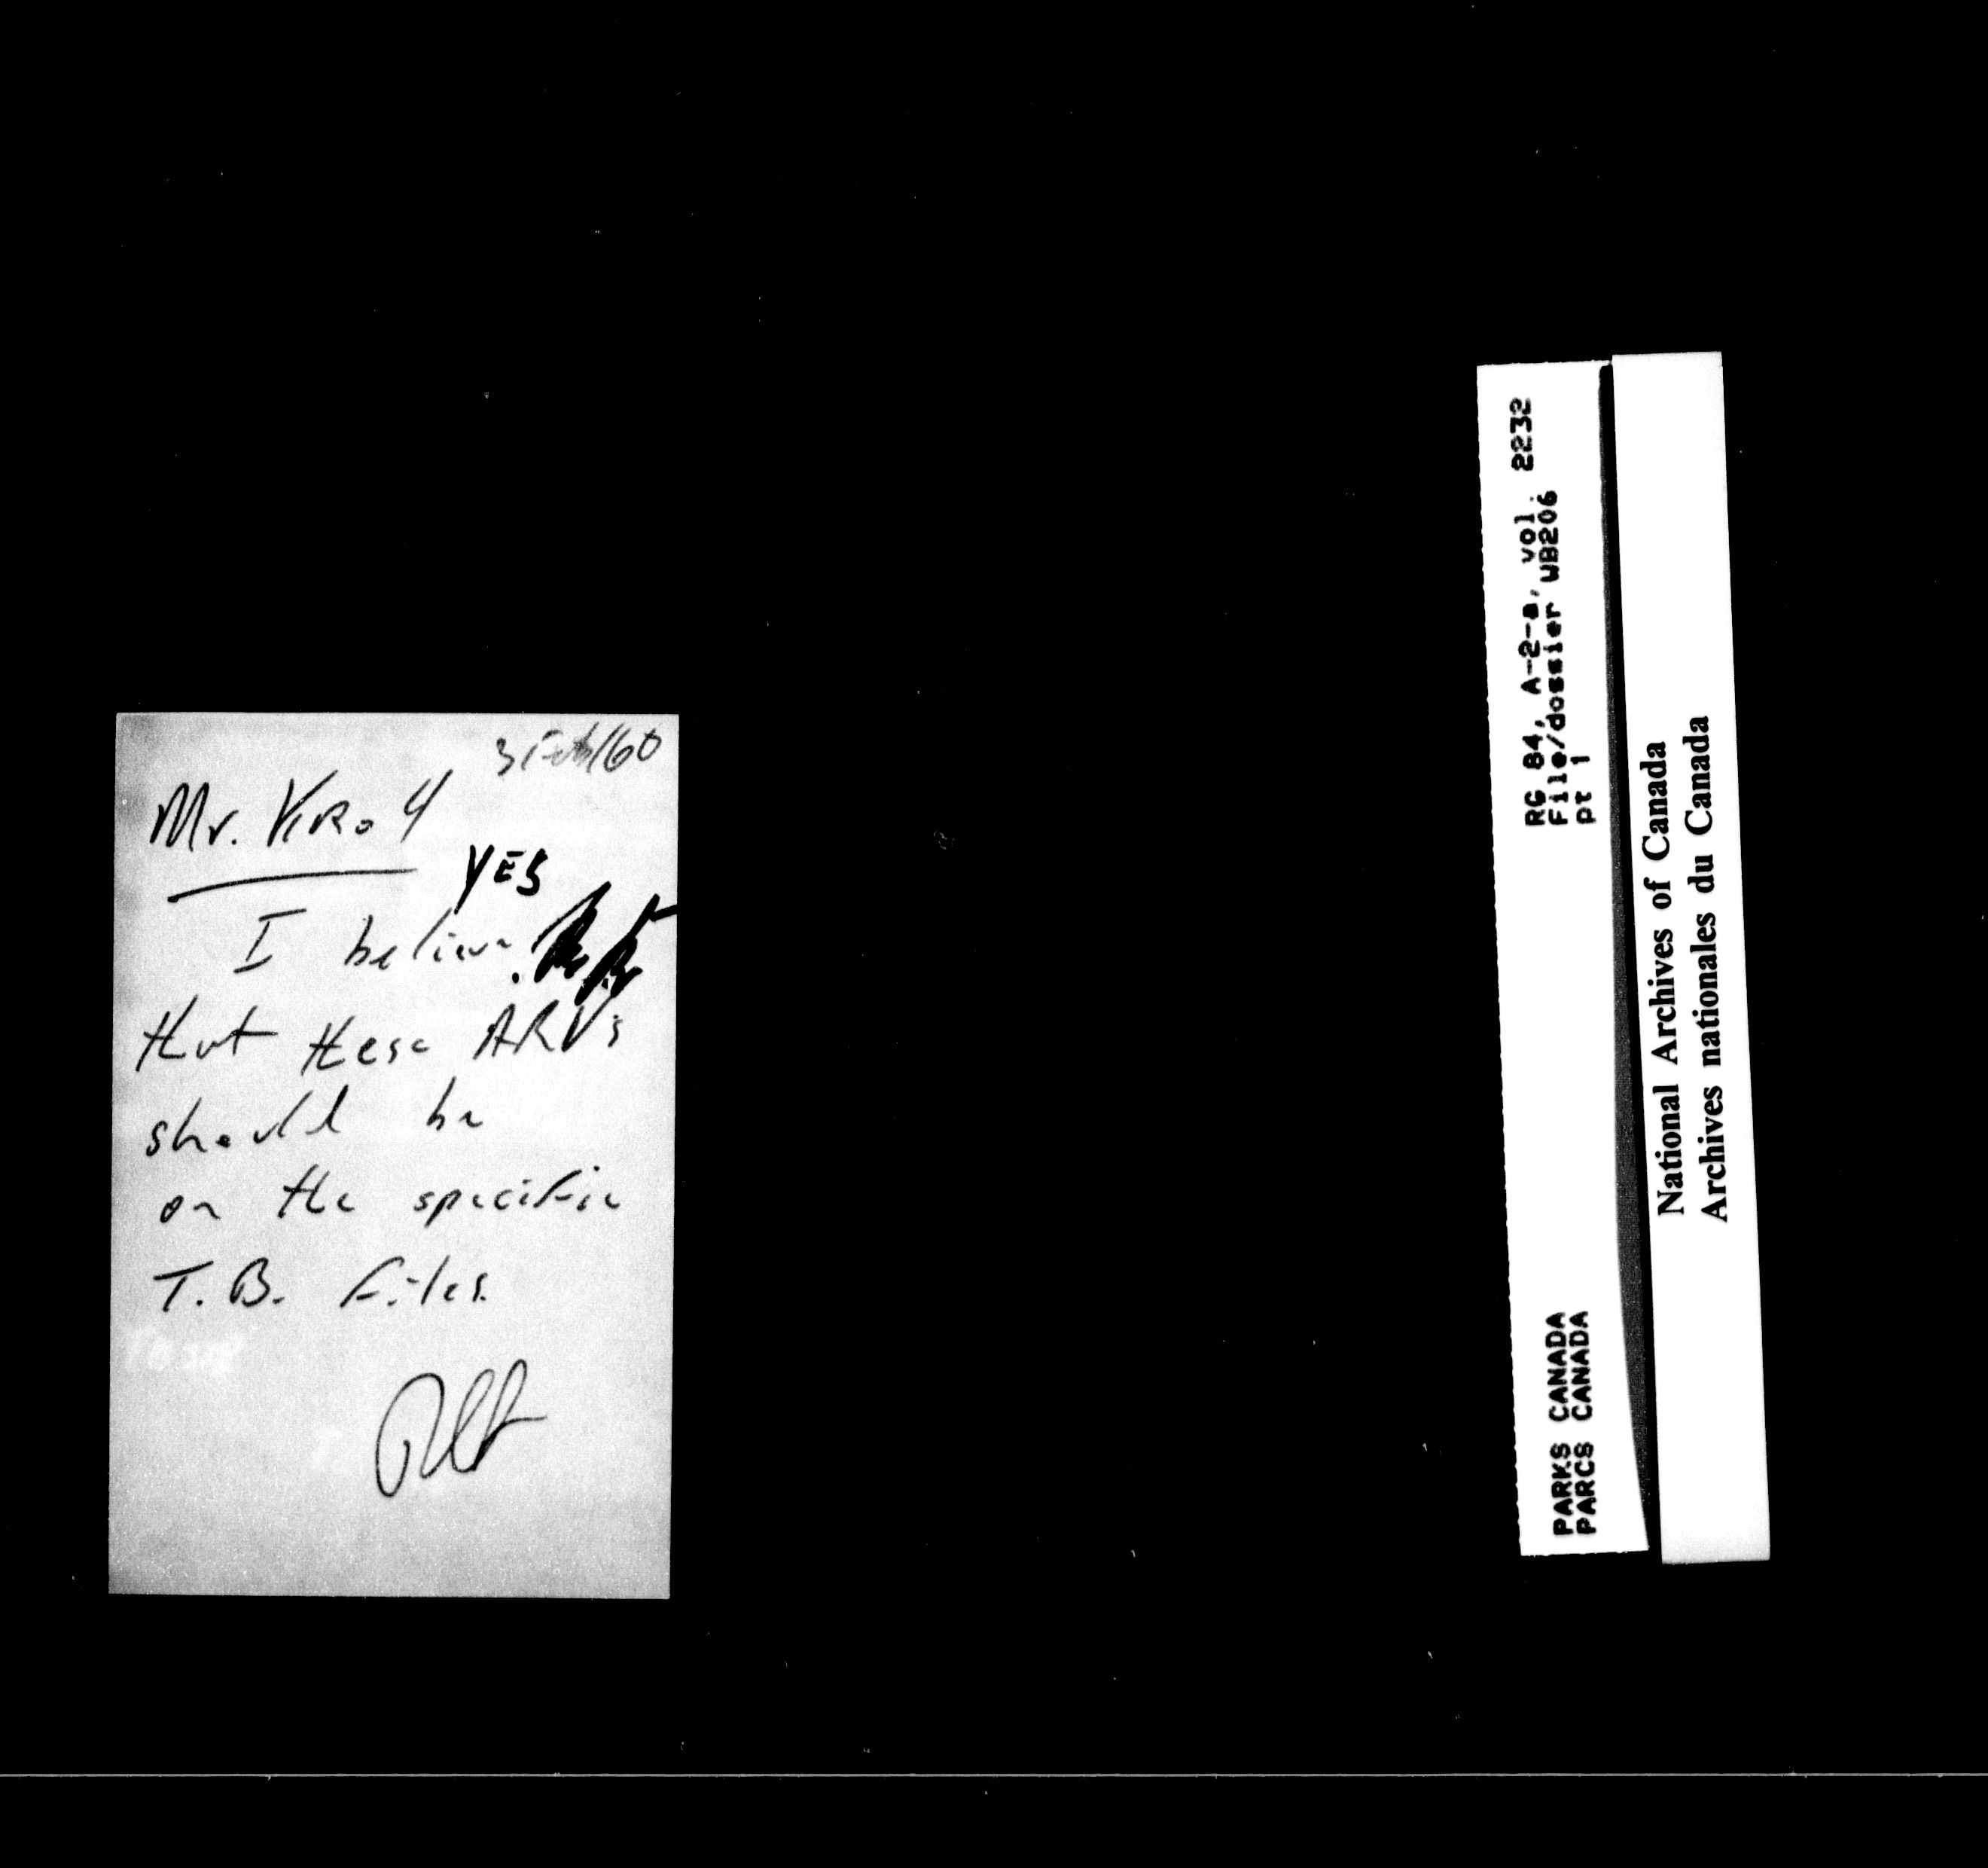 3 Feb/60
Mr.
YES
I believe
that these ARV's
should be
on the specific
T.B. Files.
RG 84, A-2-a, vol. 2232
File/dossier WB206
pt 1
PARKS CANADA
PARCS CANADA
National Archives of Canada
Archives nationales du Canada